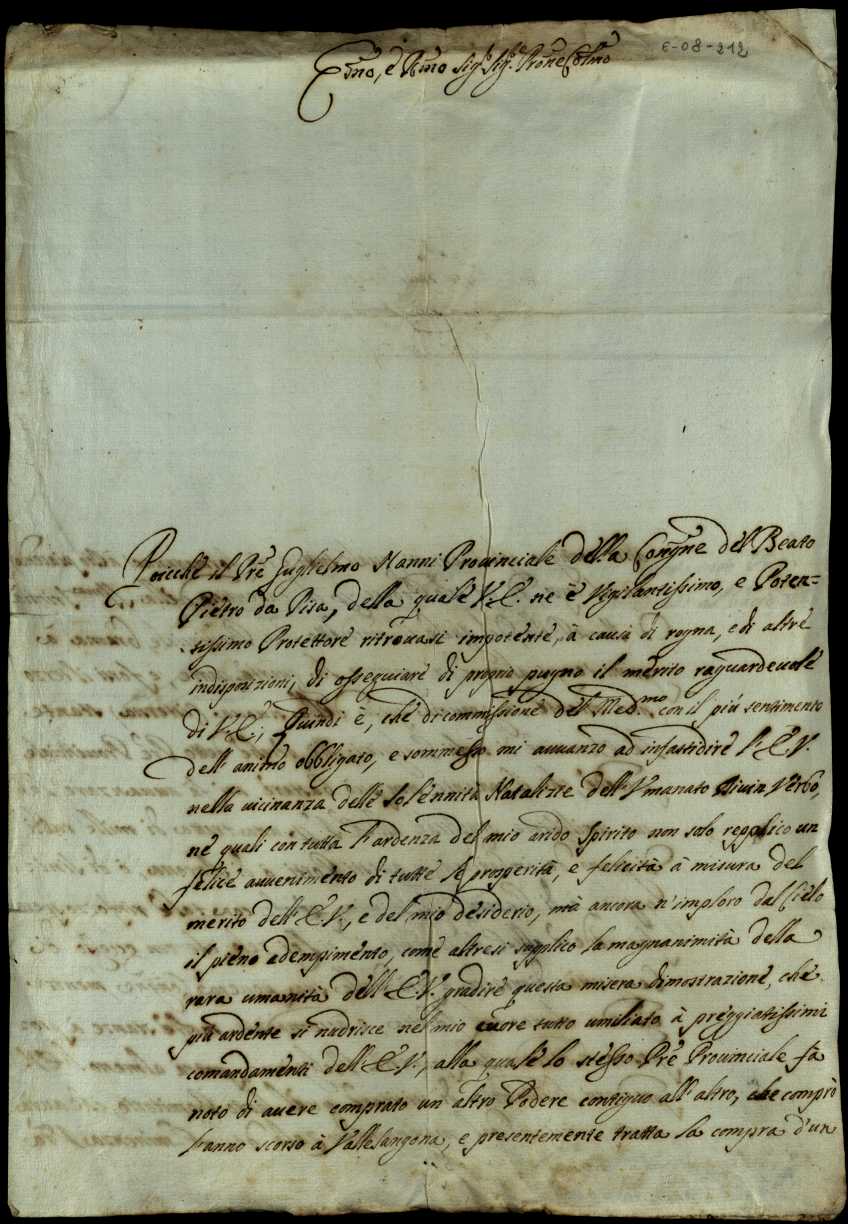 6-08-212
Emo, e Rmo Sigr Sigr Prone Colmo
Poicchè il Pre Guglielmo Nanni Provinciale della Congne del Beato
Pietro da Pisa, della quale V.E. ne è Vigilantissimo, e Poten=
tissimo Protettore ritrovasi impotente, à causa di rogna, e di altre
indisposizioni, di ossequiare di proprio pugno il merito raguardevole
di V.E., Quindi è, che di commissione del Med.mo con il più sentimento
dell'animo obbligato, e sommesso mi avvanzo ad infastidire l'E.V.
nella vicinanza delle Solennità Natalizie dell'Umanato Divin Verbo,
ne quali con tutta l'ardenza del mio arido Spirito non solo repplico un
felice avvenimento di tutte le prosperità, e felicità à misura del
merito dell'E.V., e del mio desiderio, mà ancora n'imploro dal Cielo
il pieno adempimento, come altresì supplico la magnanimità della
rara umanità dell'E.V. gradire questa misera dimostrazione, che
più ardente si nudrisce nel mio cuore tutto umiliato à preggiatissimi
comandamenti dell'E.V., alla quale lo stesso Pre Provinciale fà
noto di avere comprato un altro Podere contiguo all'altro, che comprò
l'anno scorso à Vallesangona, e presentemente tratta la compra d'un